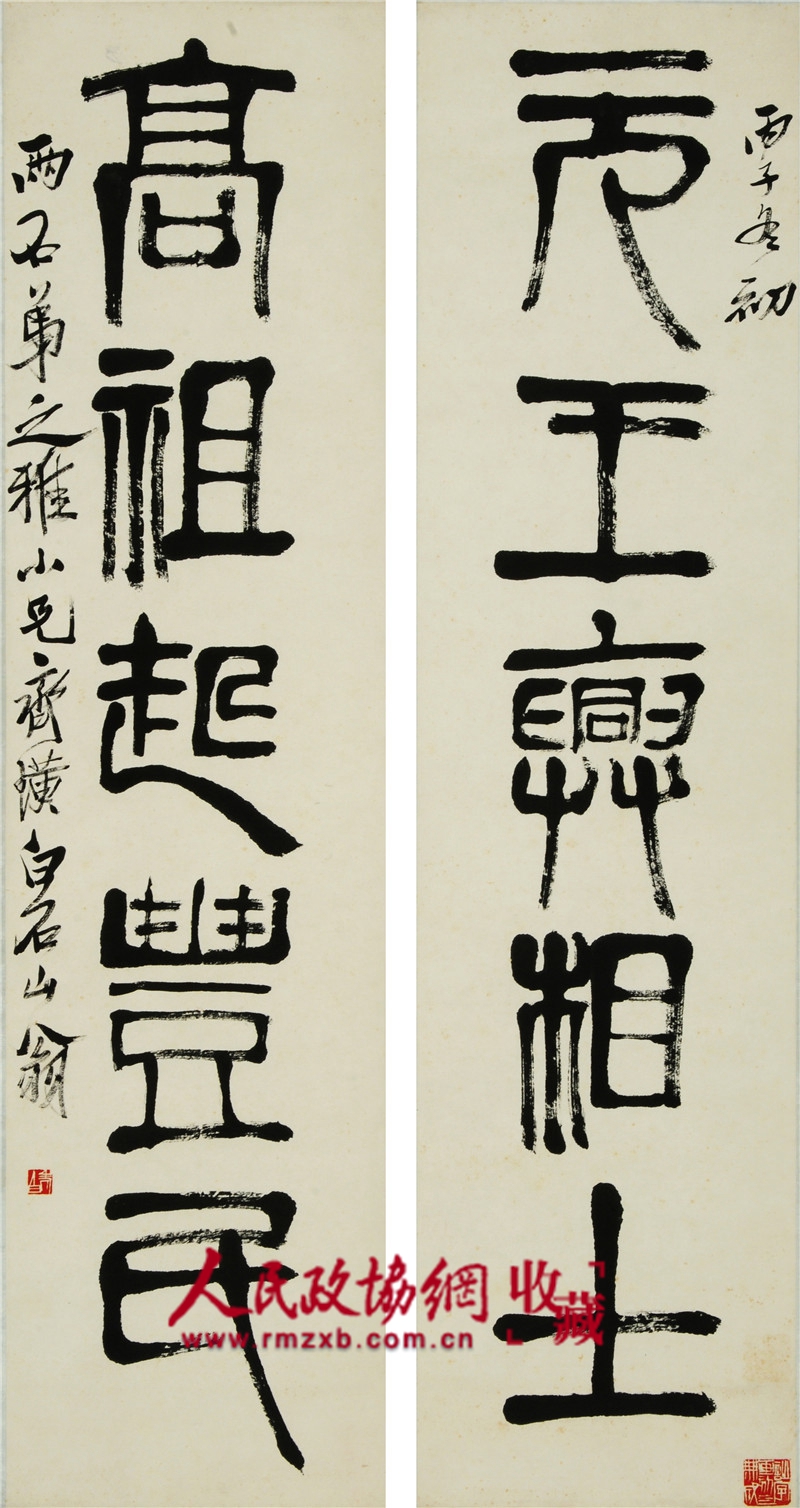 丙子冬初
元王興相土
高祖起豐民
弟之雅小兄齊璜白石山翁
人民政協網「收藏」
www.rmzxb.com.cn